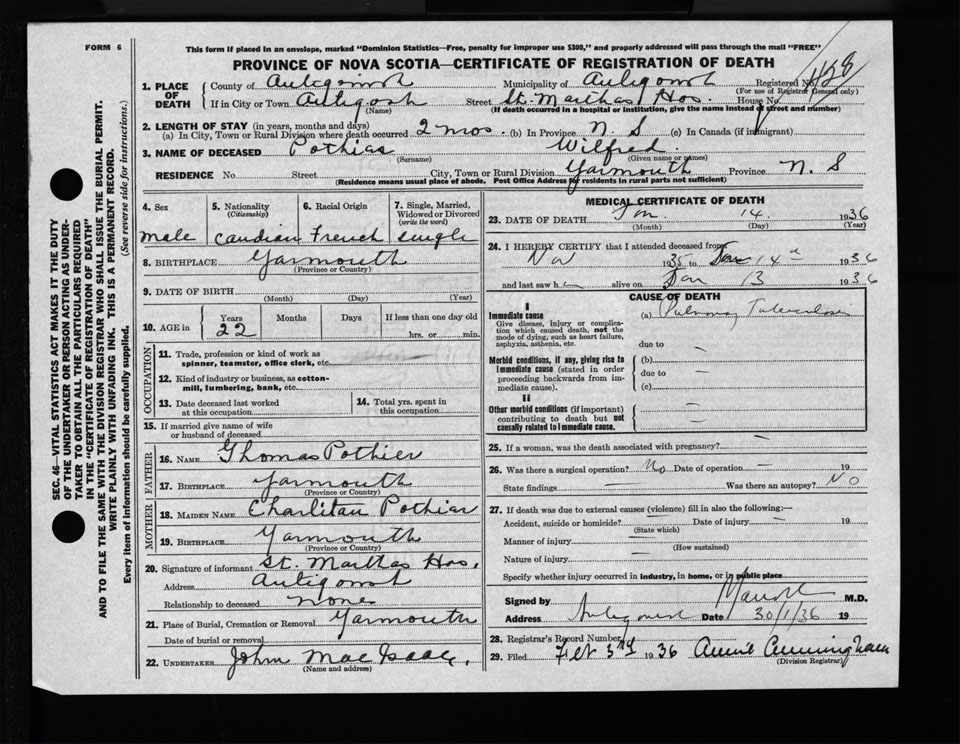 FORM 6
This form if placed in an envelope, marked "Dominion Statistics—Free, penalty for improper use $300," and properly addressed will pass through the mail "FREE"
PROVINCE OF NOVA SCOTIA—CERTIFICATE OF REGISTRATION OF DEATH
1. PLACE OF DEATH
County of Antigonish Municipality of Antigonish Registered No. 428
(For use of Registrar General only)
If in City or Town Antigosh Street St. Marthas Hos. House No.
(Name) (If death occurred in a hospital or institution, give the name instead of street and number)
2. LENGTH OF STAY (in years, months and days)
(a) In City, Town or Rural Division where death occurred 2 mos. (b) In Province N. S (c) In Canada (if immigrant)
3. NAME OF DECEASED Pothier Wilfred.
(Surname) (Given name or names)
RESIDENCE No. Street City, Town or Rural Division Yarmouth Province N. S
(Residence means usual place of abode. Post Office Address for residents in rural parts not sufficient)
4. Sex
male
5. Nationality
(Citizenship)
Candian
6. Racial Origin
French
7. Single, Married, Widowed or Divorced
(write the word)
single
8. BIRTHPLACE Yarmouth
(Province or Country)
9. DATE OF BIRTH
(Month) (Day) (Year)
10. AGE in Years 22 Months Days If less than one day old
hrs. or min.
OCCUPATION
11. Trade, profession or kind of work as
spinner, teamster, office clerk, etc.
12. Kind of industry or business, as cotton-
mill, lumbering, bank, etc.
13. Date deceased last worked
at this occupation
14. Total yrs. spent in
this occupation
15. If married give name of wife
or husband of deceased
FATHER
16. NAME Thomas Pothier
17. BIRTHPLACE Yarmouth
(Province or Country)
MOTHER
18. MAIDEN NAME Charlitau Pothier
19. BIRTHPLACE Yarmouth
(Province or Country)
20. Signature of informant St. Marthas Hos.
Address Antigonish
Relationship to deceased none
21. Place of Burial, Cremation or Removal Yarmouth
Date of burial or removal
22. UNDERTAKER John MacIsaac.
(Name and address)
MEDICAL CERTIFICATE OF DEATH
23. DATE OF DEATH Jan 14. 1936
(Month) (Day) (Year)
24. I HEREBY CERTIFY that I attended deceased from
Nov 1935 to Jan 14th 1936
and last saw h alive on Jan 13 1936
CAUSE OF DEATH
I
Immediate cause
Give disease, injury or complica-
tion which caused death, not the
mode of dying, such as heart failure,
asphyxia, asthenia, etc.
(a) Pulmonary Tuberculosis
due to —
Morbid conditions, if any, giving rise to
immediate cause (stated in order
proceeding backwards from im-
mediate cause).
(b)
due to —
(c)
II
Other morbid conditions (if important)
contributing to death but not
causally related to immediate cause.
25. If a woman, was the death associated with pregnancy? —
26. Was there a surgical operation? No Date of operation — 19
State findings — Was there an autopsy? No
27. If death was due to external causes (violence) fill in also the following:—
Accident, suicide or homicide? Date of injury — 19
(State which)
Manner of injury
(How sustained)
Nature of injury
Specify whether injury occurred in industry, in home, or in public place
Signed by M.D.
Address Antigonish Date 30/1/36 19
28. Registrar's Record Number
29. Filed Feb 3rd 1936 Annie Cunningham
(Division Registrar)
SEC. 46—VITAL STATISTICS ACT MAKES IT THE DUTY
OF THE UNDERTAKER OR PERSON ACTING AS UNDER-
TAKER TO OBTAIN ALL THE PARTICULARS REQUIRED
IN THE "CERTIFICATE OF REGISTRATION OF DEATH"
AND TO FILE THE SAME WITH THE DIVISION REGISTRAR WHO SHALL ISSUE THE BURIAL PERMIT.
WRITE PLAINLY WITH UNFADING INK. THIS IS A PERMANENT RECORD.
Every item of information should be carefully supplied. (See reverse side for instructions.)